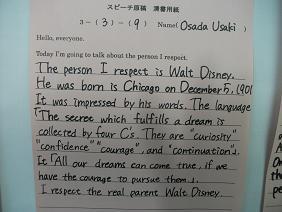 スピーチ原稿 清書用紙
3-(3)-(9) Name(Osada Usaki)
Hello, everyone.
Today I'm going to talk about the person I respect.
The person I respect is Walt Disney.
He was born is Chicago on December 5, 1901
It was impressed by his words. The language
「The secret which fulfills a dream is
collected by four C's. They are "curiosity"
"confidence" "courage", and "continuation"」.
It「All our dreams can come true, if we
have the courage to pursue them」.
I respect the real parent Walt Disney.